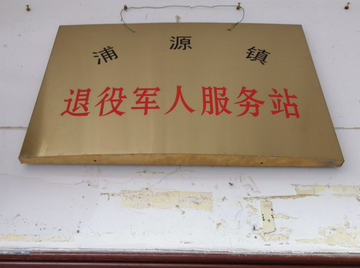 浦源镇
退役军人服务站